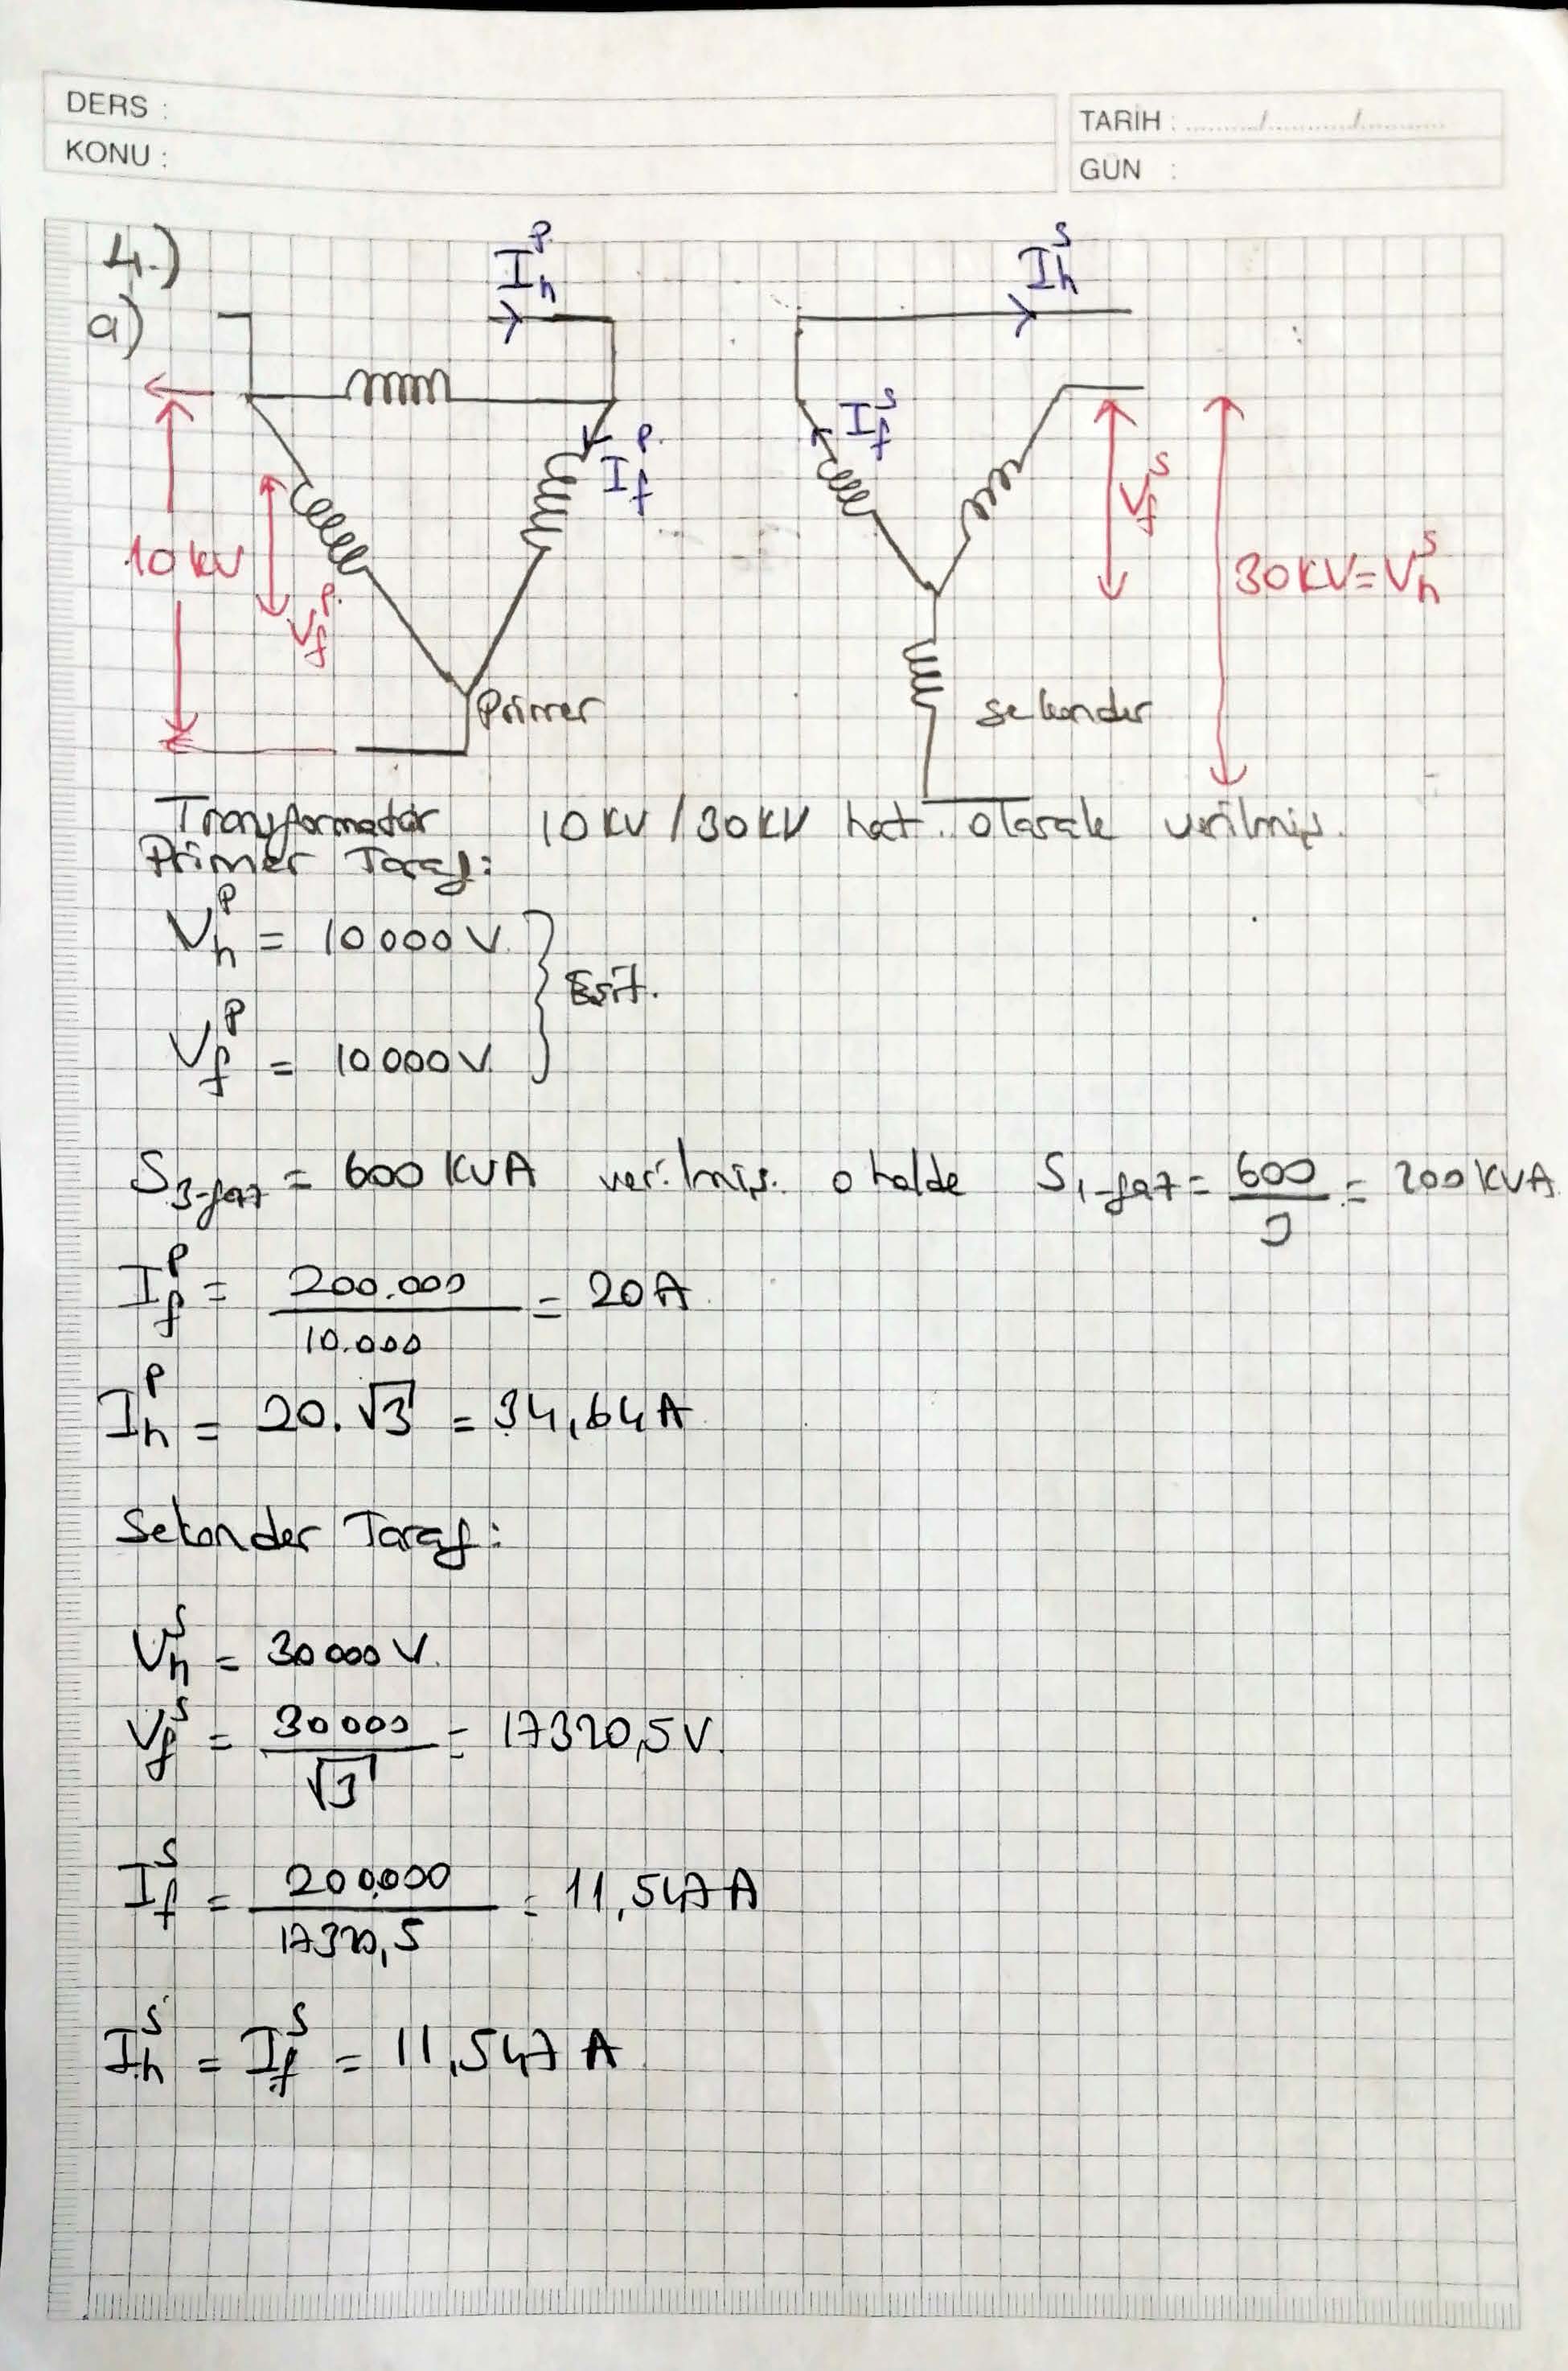 DERS :
KONU :
TARİH : ......../......../........
GÜN :
4.)
a)
I_h^P
I_h^S
I_f^P
I_f^S
10 kV
V_f^P
V_f^S
30 kV = V_h^S
Primer
sekonder
Transformatör 10 kV / 30 kV hat olarak verilmiş.
Primer Taraf:
V_h^P = 10 000 V
Eşit.
V_f^P = 10 000 V
S_3-faz = 600 KVA verilmiş. o halde S_1-faz = 600/3 = 200 KVA
I_f^P = 200.000/10.000 = 20 A
I_h^P = 20.√3 = 34,64 A
Sekonder Taraf:
V_h^S = 30 000 V
V_f^S = 30 000/√3 = 17320,5 V.
I_f^S = 200000/17320,5 = 11,547 A
I_h^S = I_f^S = 11,547 A